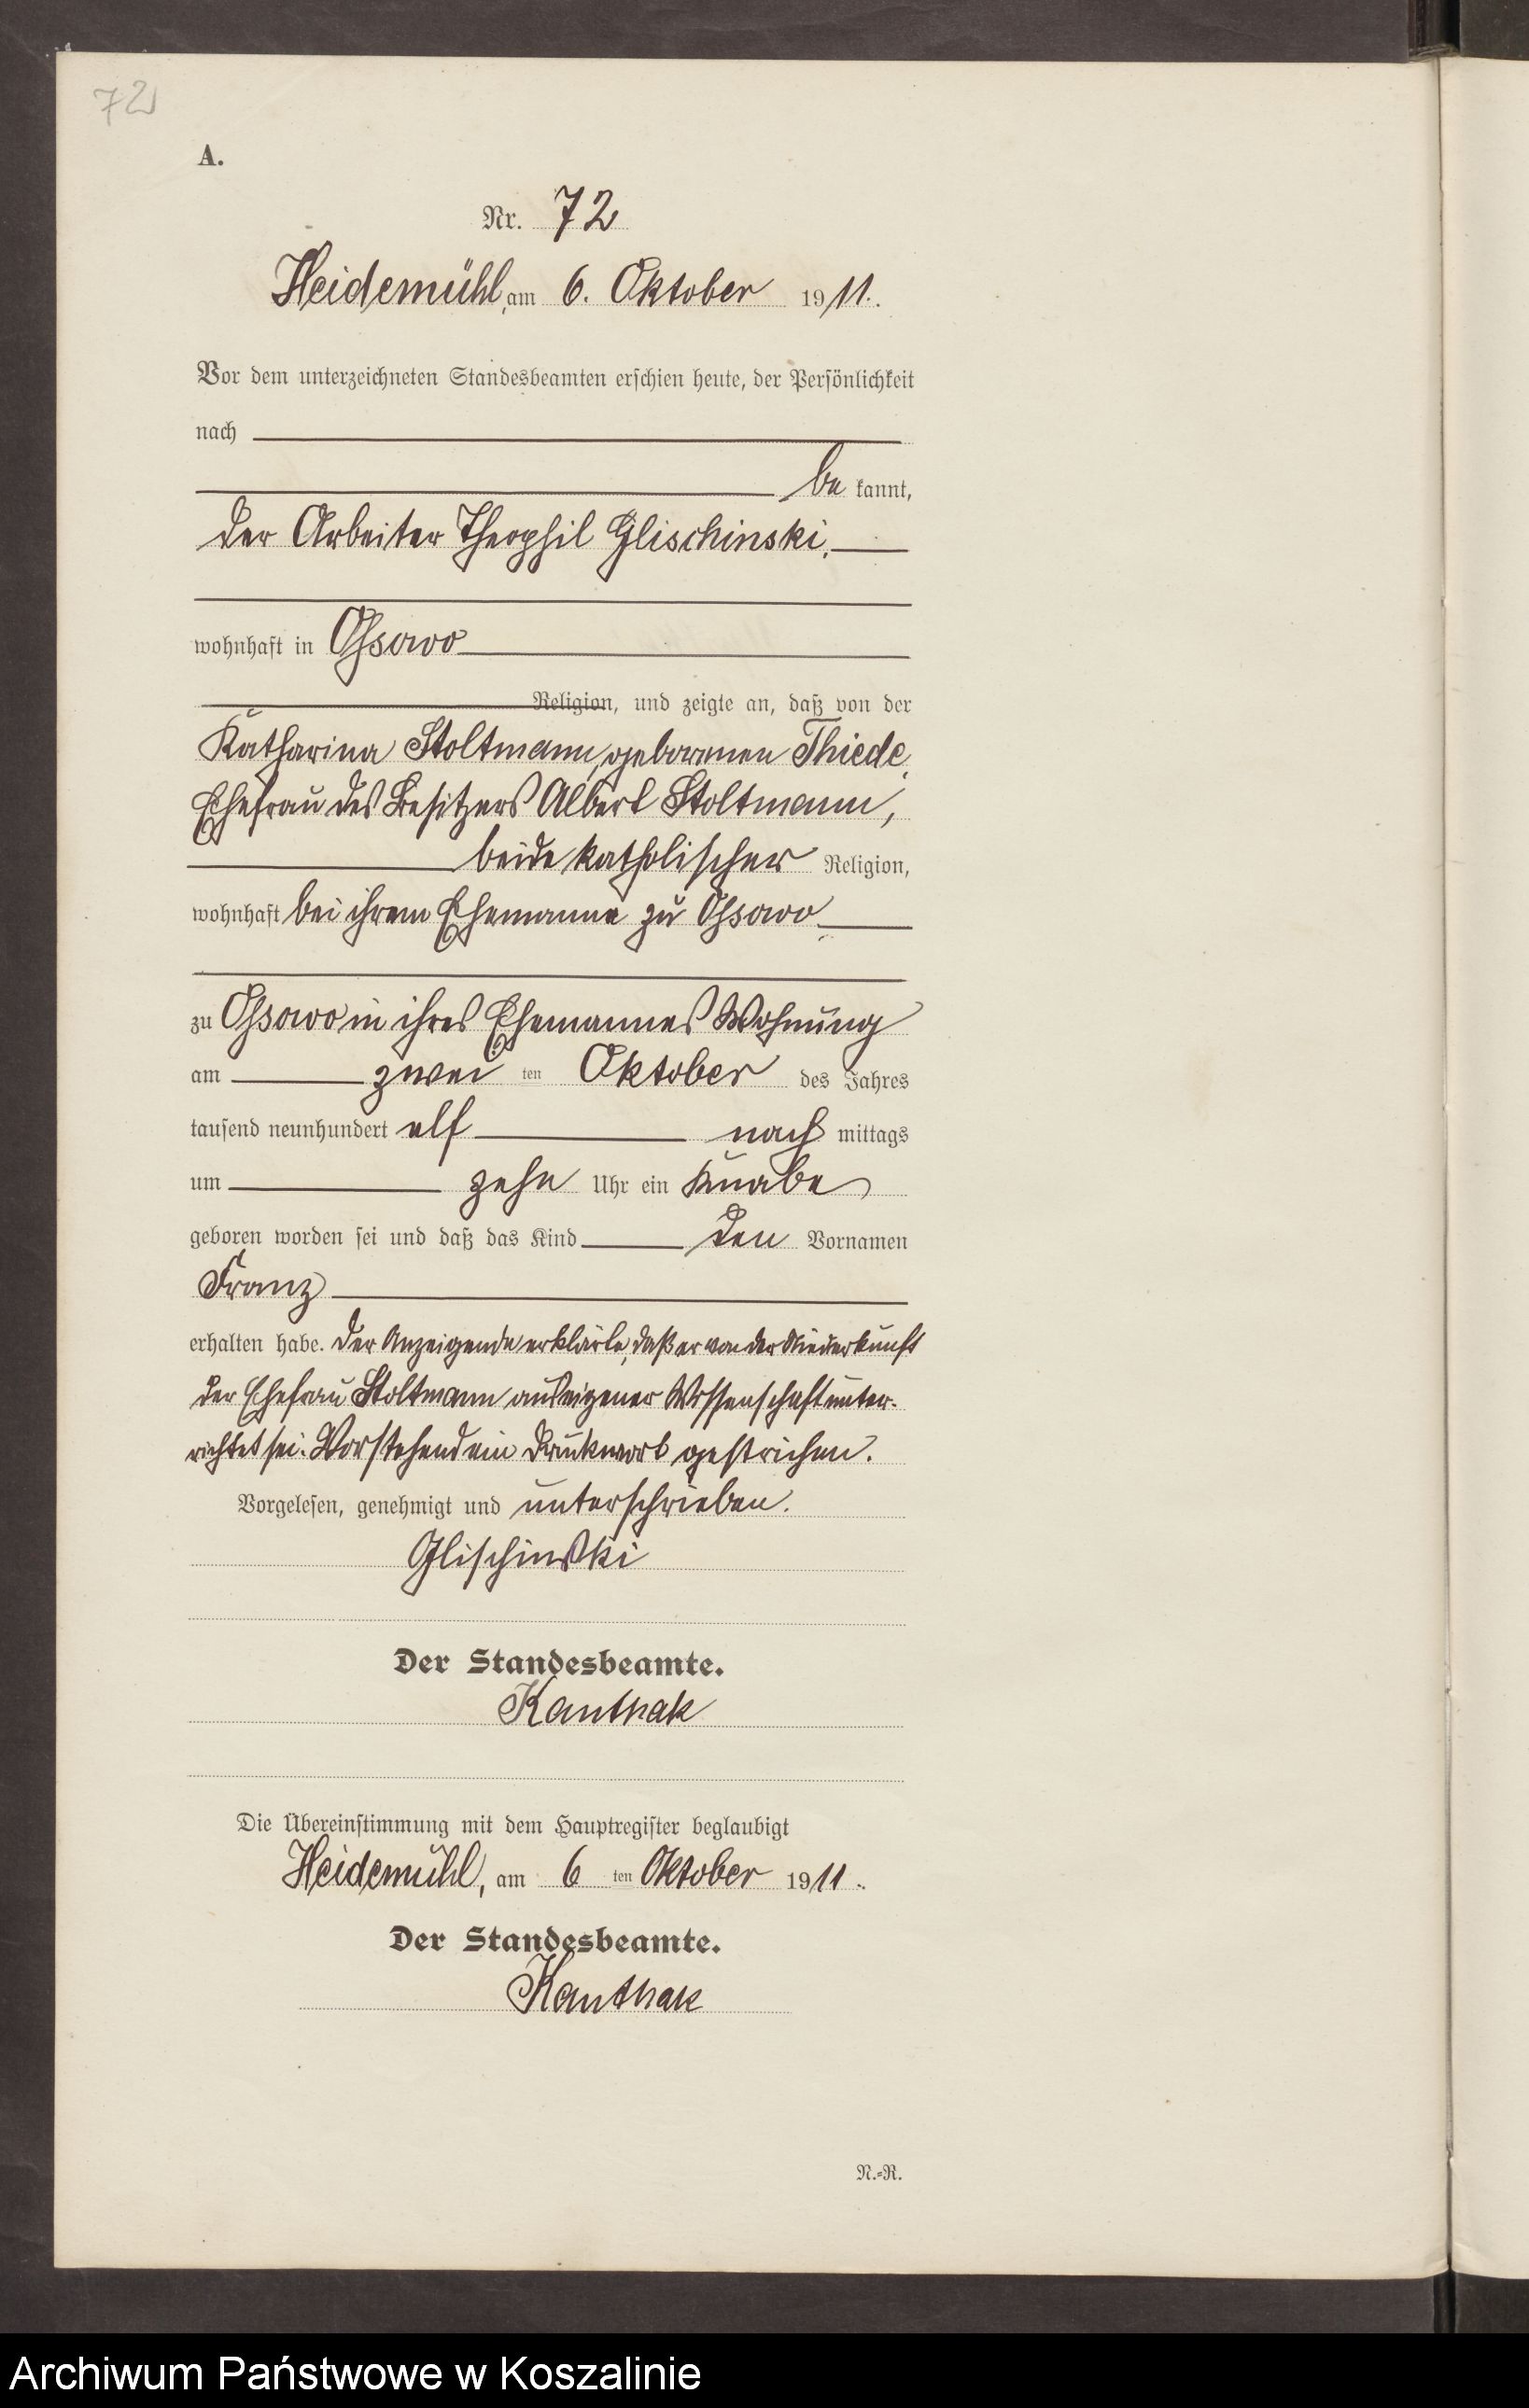 72
A.
Nr. 72
Heidemühl, am 6. Oktober 1911.
Vor dem unterzeichneten Standesbeamten erschien heute, der Persönlichkeit
nach
be kannt,
der Arbeiter Theophil Glischinski,
wohnhaft in Ossowo
Religion, und zeigte an, daß von der
Katharina Stoltmann, geborenen Thiede,
Ehefrau des Besitzers Albert Stoltmann,
beide katholischer Religion,
wohnhaft bei ihrem Ehemanne zu Ossowo
zu Ossowo in ihres Ehemannes Wohnung
am zwei ten Oktober des Jahres
tausend neunhundert elf nach mittags
um zehn Uhr ein Knabe
geboren worden sei und daß das Kind den Vornamen
Franz
erhalten habe. Der Anzeigende erklärte, daß er von der Niederkunft
der Ehefrau Stoltmann aus eigener Wissenschaft unter-
richtet sei. Vorstehend ein Druckwort gestrichen.
Vorgelesen, genehmigt und unterschrieben.
Glischinski
Der Standesbeamte.
Kanthak
Die Übereinstimmung mit dem Hauptregister beglaubigt
Heidemühl, am 6 ten Oktober 1911.
Der Standesbeamte.
Kanthak
N.=R.
Archiwum Państwowe w Koszalinie